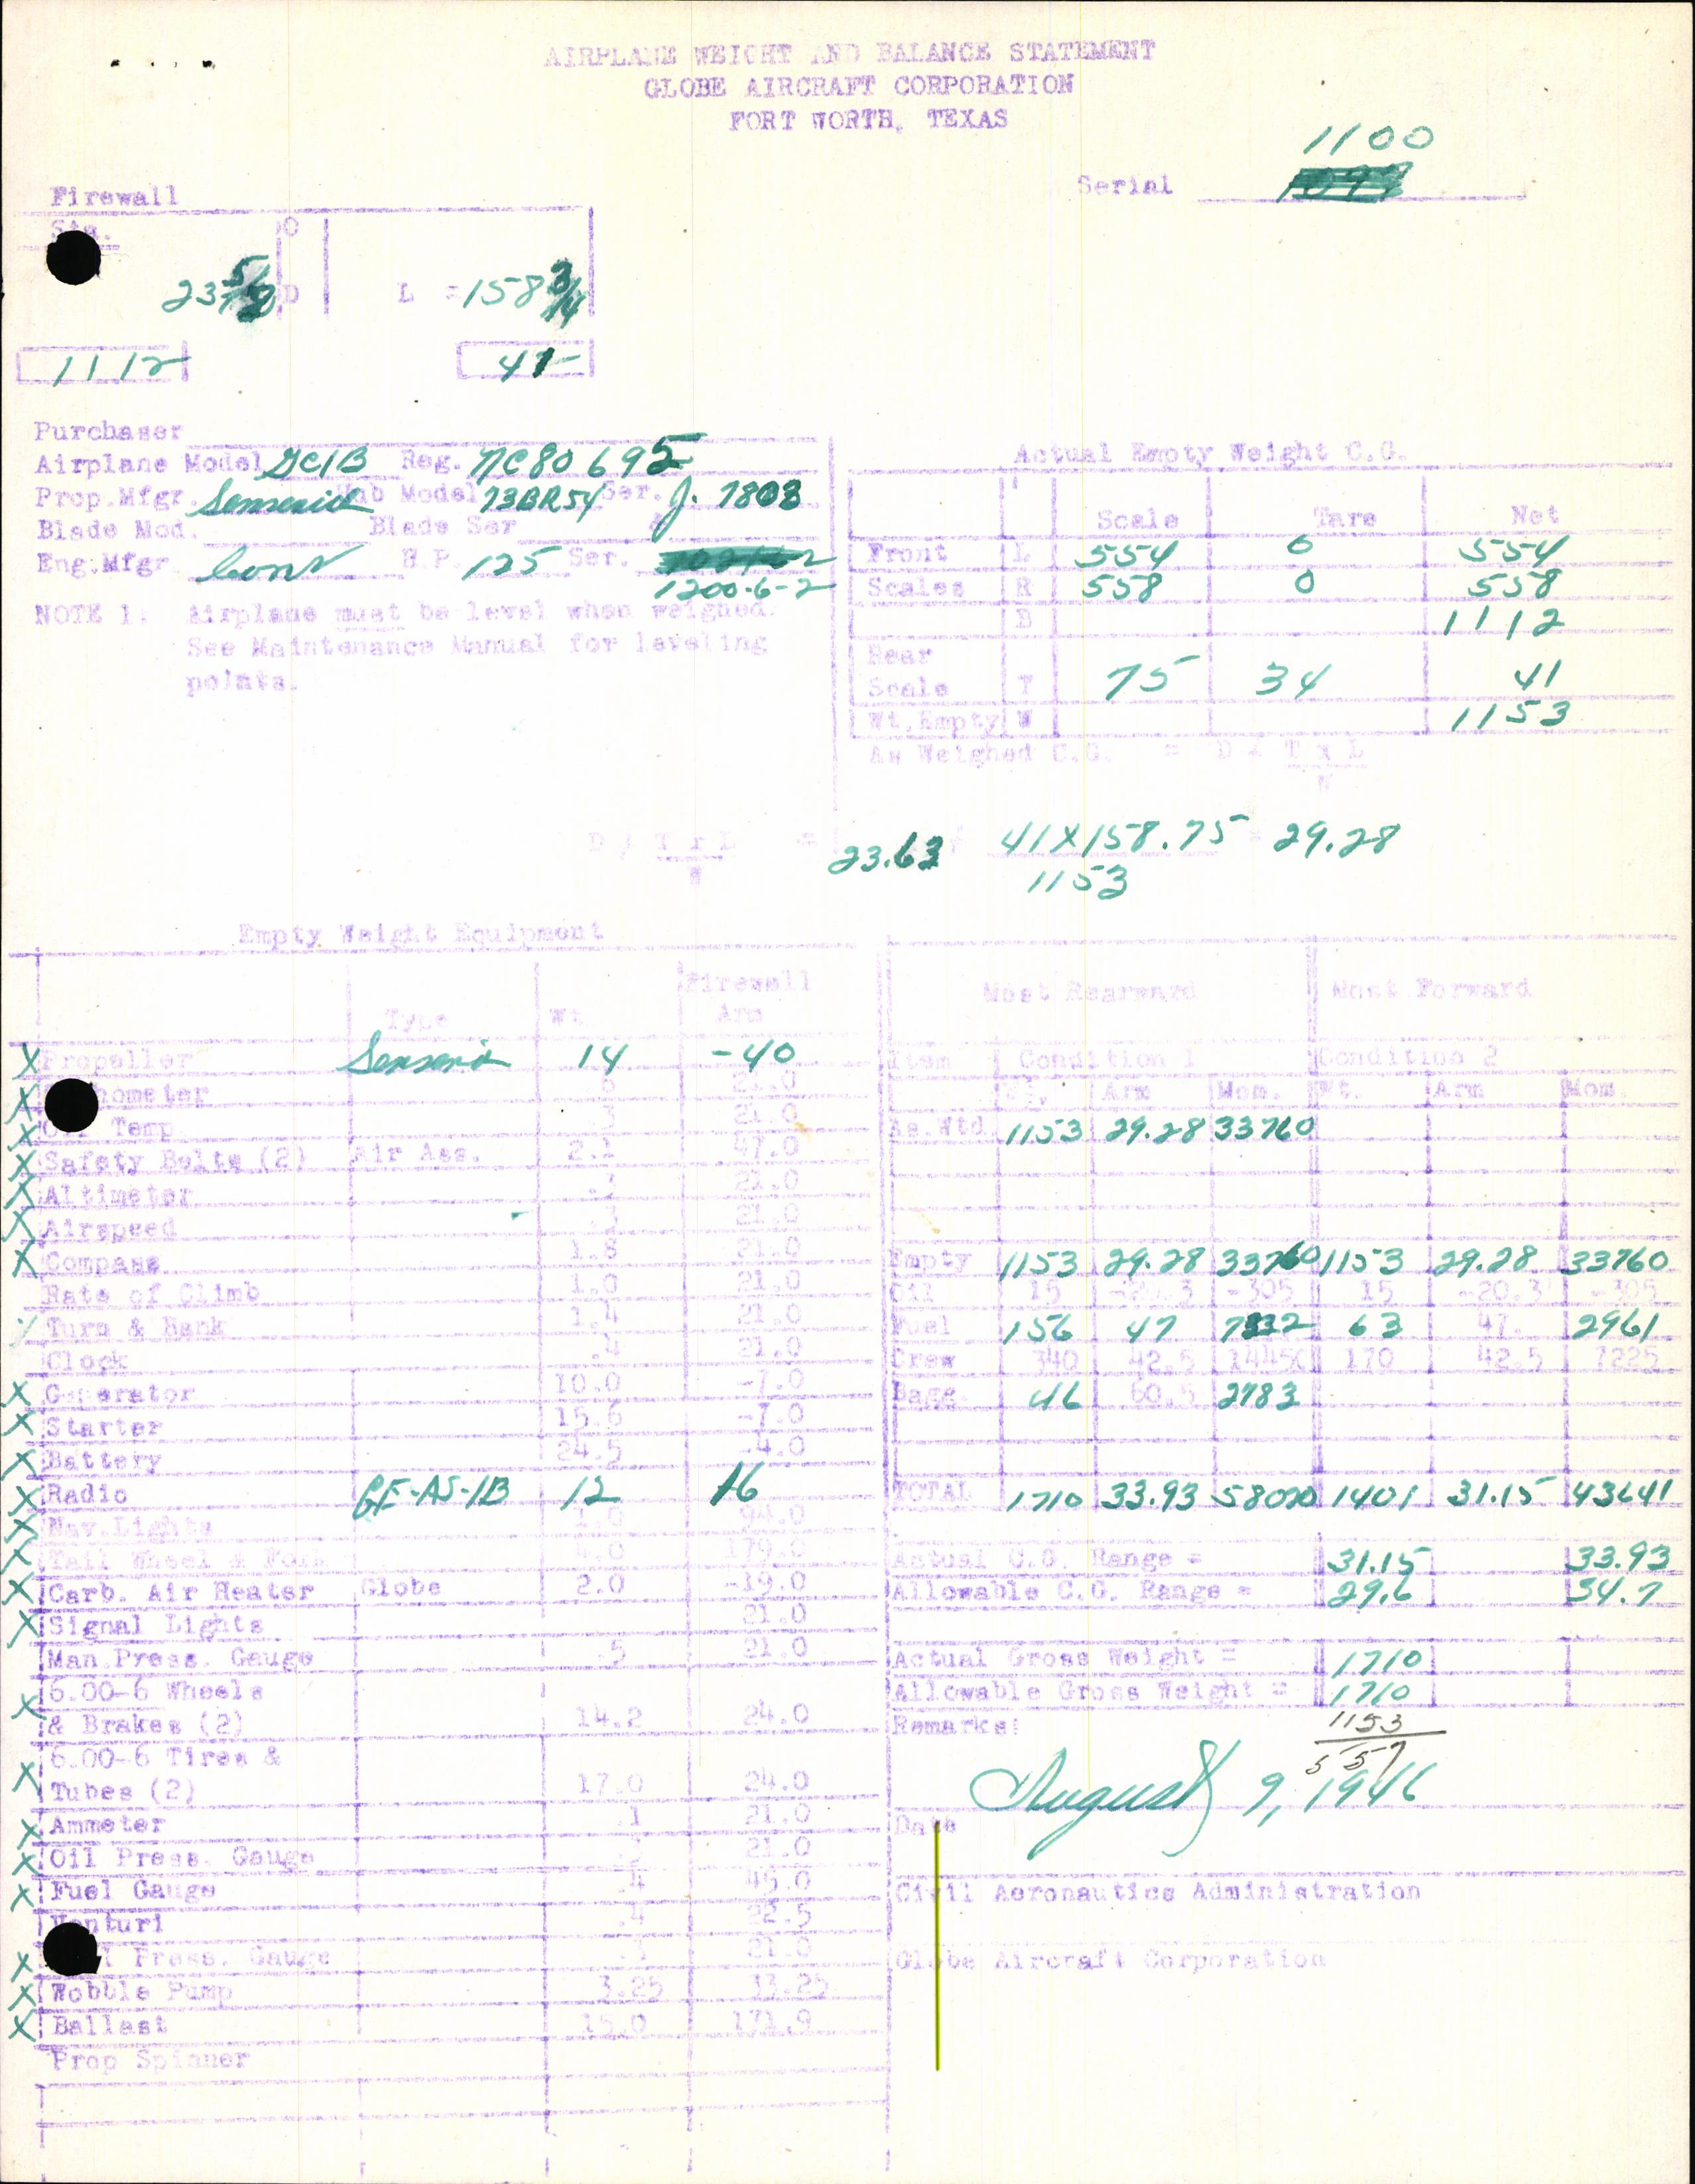 AIRPLANE WEIGHT AND BALANCE STATEMENT
GLOBE AIRCRAFT CORPORATION
FORT WORTH, TEXAS
1100
Serial
Firewall
Sta. O
23 5/8 D L = 158 3/4
1112 41
Purchaser
Airplane Model GC1B Reg. NC80695
Prop.Mfgr. Sensenich Hub Model 73BR54 Ser. J. 7808
Blade Mod. Blade Ser &
Eng.Mfgr. Cont H.P. 125 Ser.
1200.6-2
NOTE 1. Airplane must be level when weighed.
See Maintenance Manual for leveling
points.
Actual Empty Weight C.G.
Scale Tare Net
Front L 554 0 554
Scales R 558 0 558
B 1112
Rear
Scale T 75 34 41
Wt.Empty W 1153
As Weighed C.G. = D ≠ T x L
W
D ≠ T x L = 23.63 ≠ 41X158.75 = 29.28
W 1153
Empty Weight Equipment
Firewall
Type Wt. Arm
X Propeller Sensenich 14 -40
X hometer 21.0
X Oil Temp .3 21.0
X Safety Belts (2) Air Ass. 2.1 47.0
X Altimeter .7 21.0
X Airspeed 21.0
X Compass 1.8 21.0
Rate of Climb 1.0 21.0
Turn & Bank 1.4 21.0
Clock .4 21.0
X Generator 10.0 -7.0
X Starter 15.6 -7.0
X Battery 24.5 -4.0
X Radio GE-AS-1B 12 16
X Nav.Lights 1.0 94.0
X Tail Wheel & Fork 4.0 179.0
X Carb. Air Heater Globe 2.0 -19.0
X Signal Lights 21.0
Man.Press. Gauge .5 21.0
6.00-6 Wheels
X & Brakes (2) 14.2 24.0
6.00-6 Tires &
X Tubes (2) 17.0 24.0
X Ammeter .1 21.0
X Oil Press. Gauge 21.0
X Fuel Gauge .4 45.0
Venturi .4 22.5
X l Press. Gauge .3 21.0
X Wobble Pump 3.25 13.25
X Ballast 15.0 171.9
Prop Spinner
Most Rearward Most Forward
Item Condition 1 Condition 2
Wt. Arm Mom. Wt. Arm Mom.
As.Wtd. 1153 29.28 33760
Empty 1153 29.28 33760 1153 29.28 33760
Oil 15 -20.3 -305 15 -20.3 -305
Fuel 156 47 7332 63 47. 2961
Crew 340 42.5 14450 170 42.5 7225
Bagg. 46 60.5 2783
TOTAL 1710 33.93 58020 1401 31.15 43641
Actual C.G. Range = 31.15 33.93
Allowable C.G. Range = 29.6 34.7
Actual Gross Weight = 1710
Allowable Gross Weight = 1710
Remarks: 1153
557
August 9, 1946
Date
Civil Aeronautics Administration
Globe Aircraft Corporation